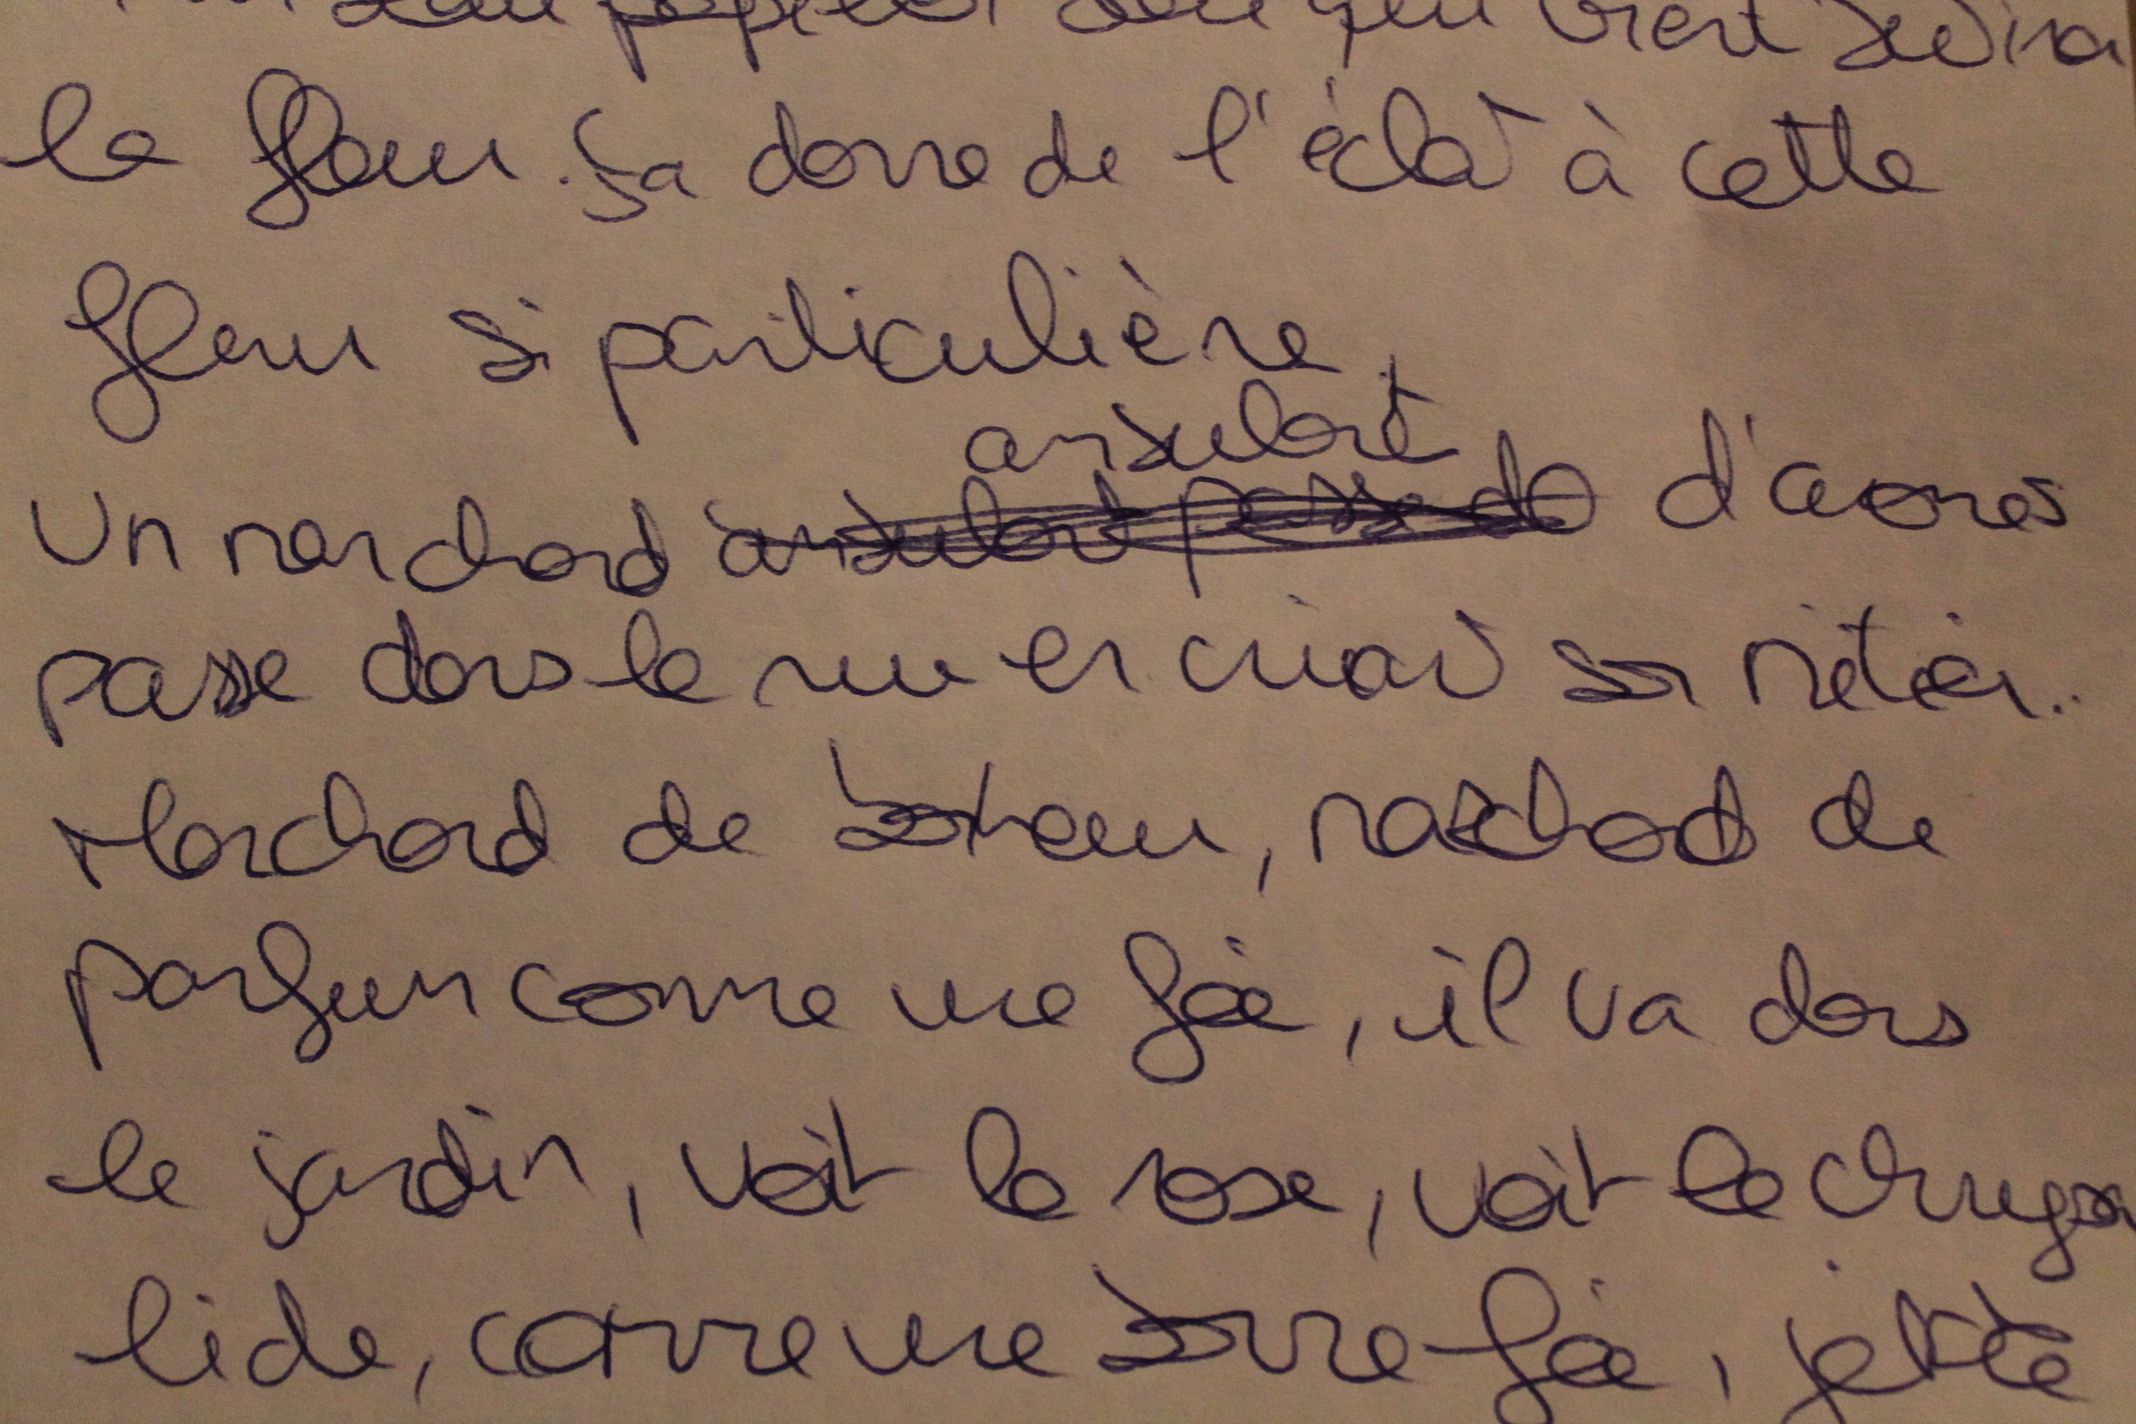 beau papillon qui vient
la fleur. ça donne de l'éclat à cette
fleur si particulière.
ambulant
Un marchand ambulant passe d'arômes
passe dans la rue en criant son métier.
Marchand de bonheur, marchand de
parfum comme une fée, il va dans
le jardin, voit la rose, voit la chrysa
lide, comme une bonne fée, jette